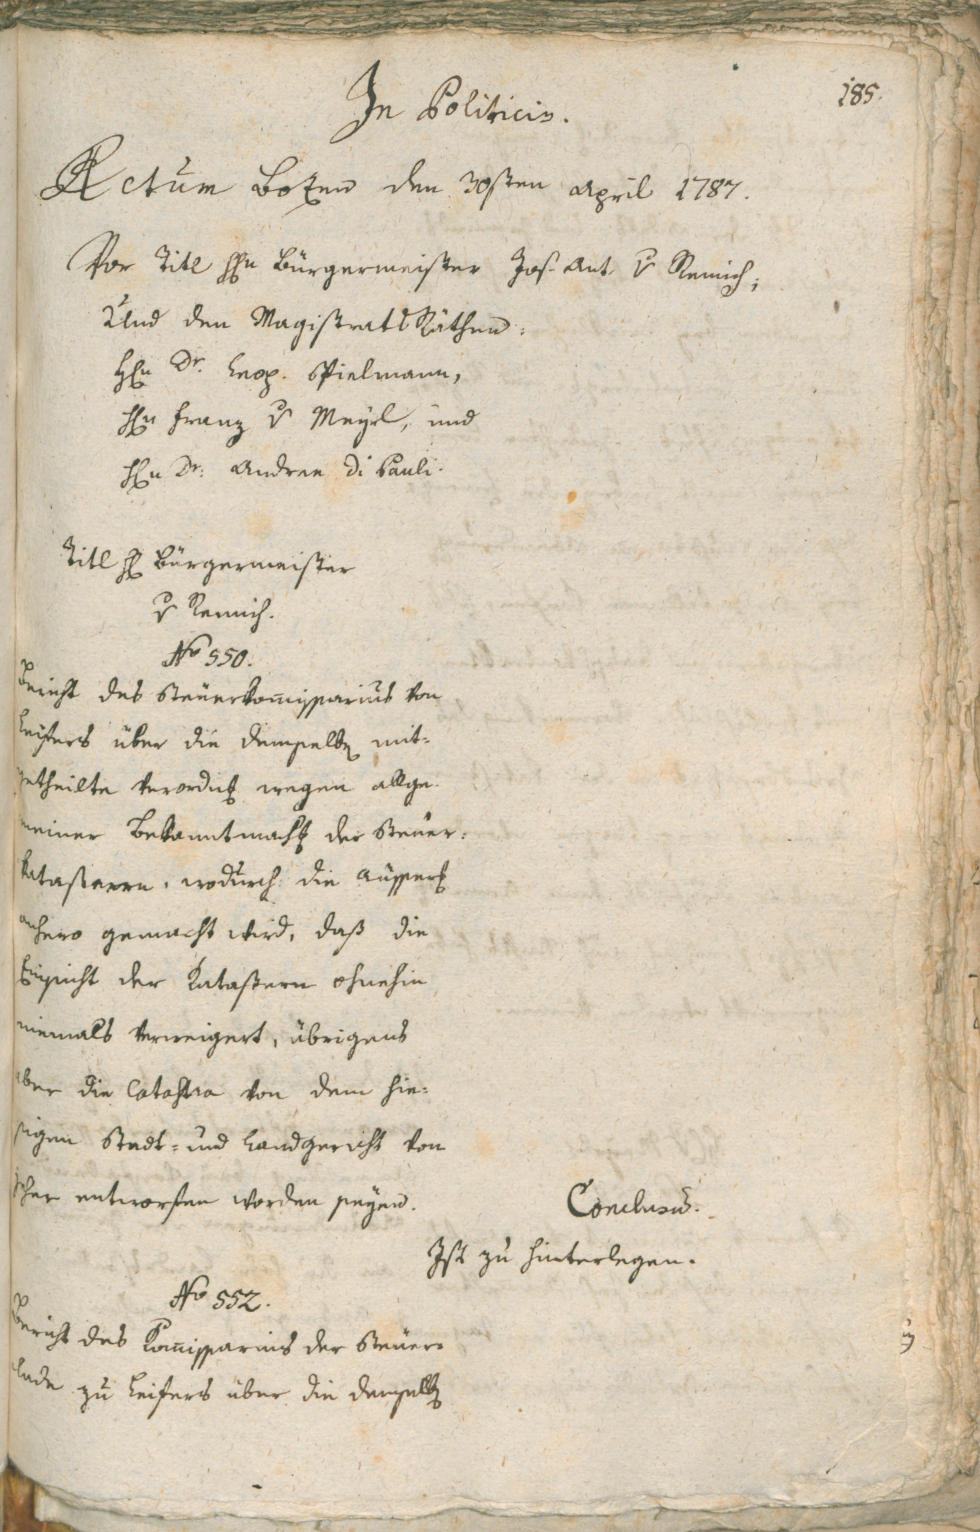 185.
In Politicis.
Actum Bozen den 30sten April 1787.
Vor Titl Hℓn Bürgermeister Jos. Ant. v Remich;
Und den Magistrats Räthen:
Hℓn Dr. Leop. Spielmann,
Hℓn Franz v Meÿrl, und
Hℓn Dr. Andree Di Pauli.
Titl H Bürgermeister
v Remich.
No 550.
Bericht des Steuerkom̄issarius von
Leifers über die demselbg mit-
getheilte Verordnūg wegen allge-
meiner Bekanntmachg der Steuer-
katastern, wodurch die Äusserg
anhero gemacht wird, daß die
Einsicht der Katastern ohnehin
niemals verweigert, übrigens
aber die Catastra von dem hie-
sigen Stadt- und Landgericht von
her entworfen worden seyen.
Conclusum.
Ist zu hinterlegen.
No 552.
Bericht des Kom̄issarius der Steuer-
lade zu Leifers über die demselbg